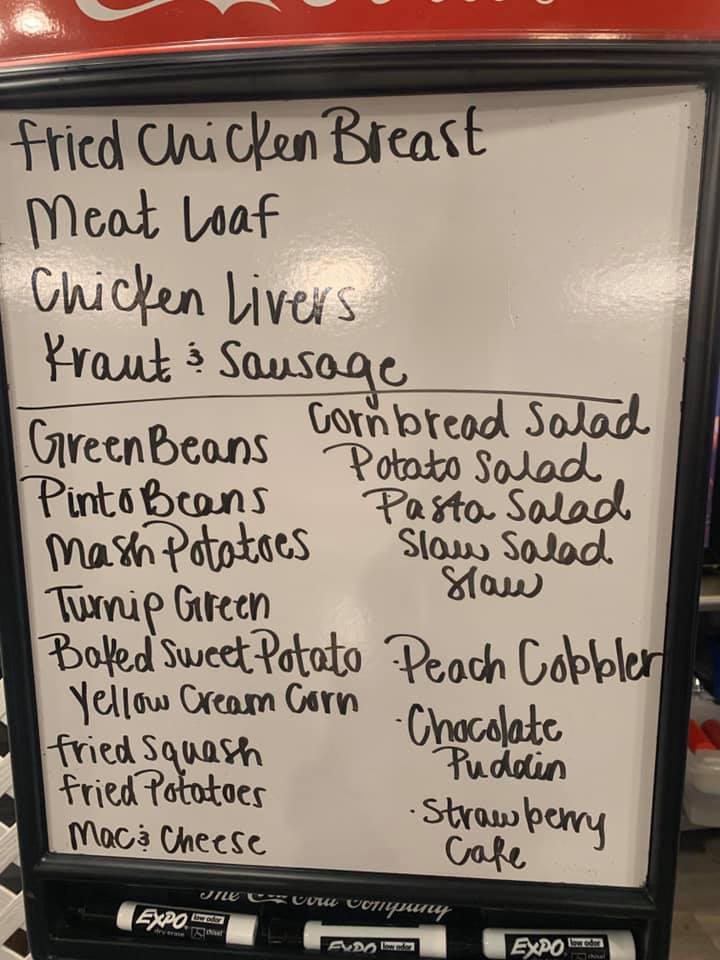 Fried Chicken Breast
Meat Loaf
Chicken Livers
Kraut & Sausage
Green Beans
Pinto Beans
Mash Potatoes
Turnip Green
Baked Sweet Potato
Yellow Cream Corn
Fried Squash
Fried Potatoes
Mac & Cheese
Cornbread Salad
Potato Salad
Pasta Salad
Slaw Salad
Slaw
·Peach Cobbler
·Chocolate
Puddin
·Strawberry
Cake
The Coca-Cola Company
EXPO low odor
dry erase chisel
EXPO low odor
EXPO low odor
chisel